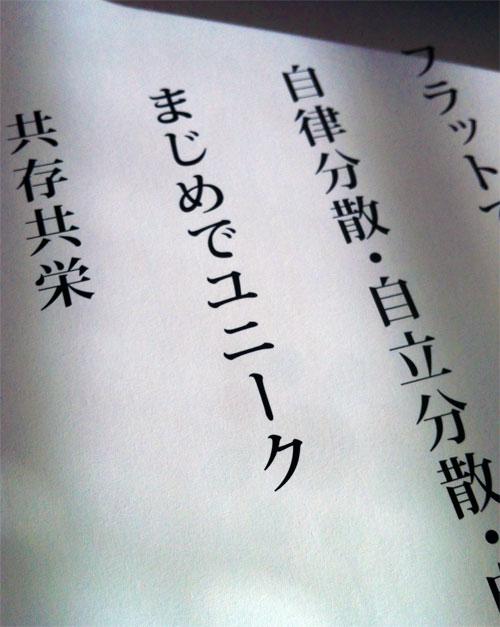 フラットで
自律分散・自立分散・
まじめでユニーク
共存共栄